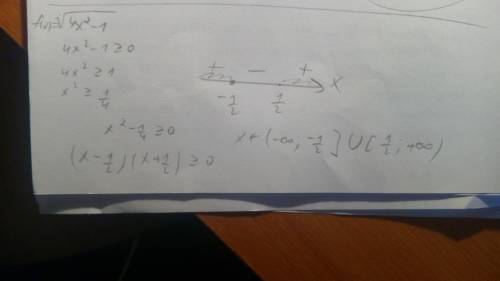 f(x)=√4x²-1
4x²-1≥0
4x²≥1
x²≥1/4
x²-1/4≥0
(x-1/2)(x+1/2)≥0
+ - +
-1/2 1/2 x
x∈(-∞, -1/2]∪[1/2; +∞)